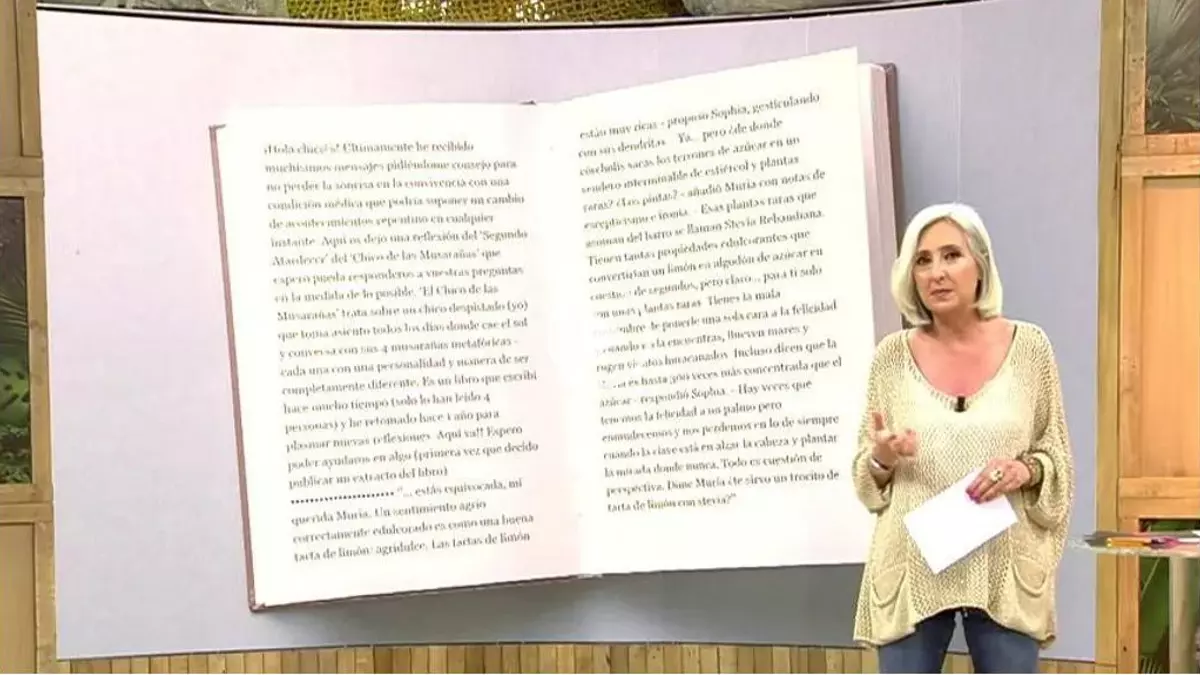 ¡Hola chic@s! Últimamente he recibido
muchísimos mensajes pidiéndome consejo para
no perder la sonrisa en la convivencia con una
condición médica que podría suponer un cambio
de acontecimientos repentino en cualquier
instante. Aquí os dejo una reflexión del 'Segundo
Atardecer' del 'Chico de las Musarañas' que
espero pueda responderos a vuestras preguntas
en la medida de lo posible. 'El Chico de las
Musarañas' trata sobre un chico despistado (yo)
que toma asiento todos los días donde cae el sol
y conversa con sus 4 musarañas metafóricas -
cada una con una personalidad y manera de ser
completamente diferente. Es un libro que escribí
hace mucho tiempo (solo lo han leído 4
personas) y he retomado hace 1 año para
plasmar nuevas reflexiones. Aquí va!! Espero
poder ayudaros en algo (primera vez que decido
publicar un extracto del libro)
..................... "... estás equivocada, mi
querida Muria. Un sentimiento agrio
correctamente edulcorado es como una buena
tarta de limón: agridulce. Las tartas de limón
están muy ricas - propuso Sophia, gesticulando
con sus dendritas. - Ya... pero ¿de donde
córcholis sacas los terrones de azúcar en un
sendero interminable de estiércol y plantas
raras? ¿Los pintas? - añadió Muria con notas de
escepticismo e ironía. - Esas plantas raras que
asoman del barro se llaman Stevia Rebaudiana.
Tienen tantas propiedades edulcorantes que
convertirían un limón en algodón de azúcar en
de segundos, pero claro... para ti solo
son unas plantas raras. Tienes la mala
de ponerle una sola cara a la felicidad
y cuando la encuentras, llueven mares y
rugen vientos huracanados. Incluso dicen que la
es hasta 300 veces más concentrada que el
azúcar - respondió Sophia. - Hay veces que
tenemos la felicidad a un palmo pero
enmudecemos y nos perdemos en lo de siempre
cuando la clave está en alzar la cabeza y plantar
la mirada donde nunca. Todo es cuestión de
perspectiva. Dime Muria ¿te sirvo un trocito de
tarta de limón con stevia?"